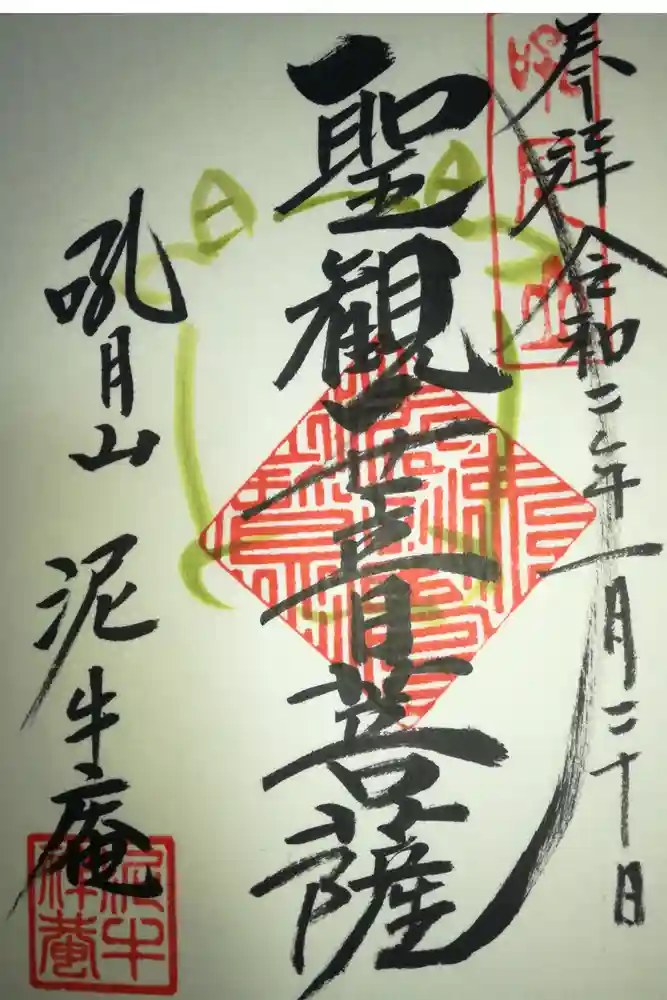 奉拝 令和二年一月二十日
聖観世音菩薩
吼月山 泥牛庵
吼月山
泥牛禅菴